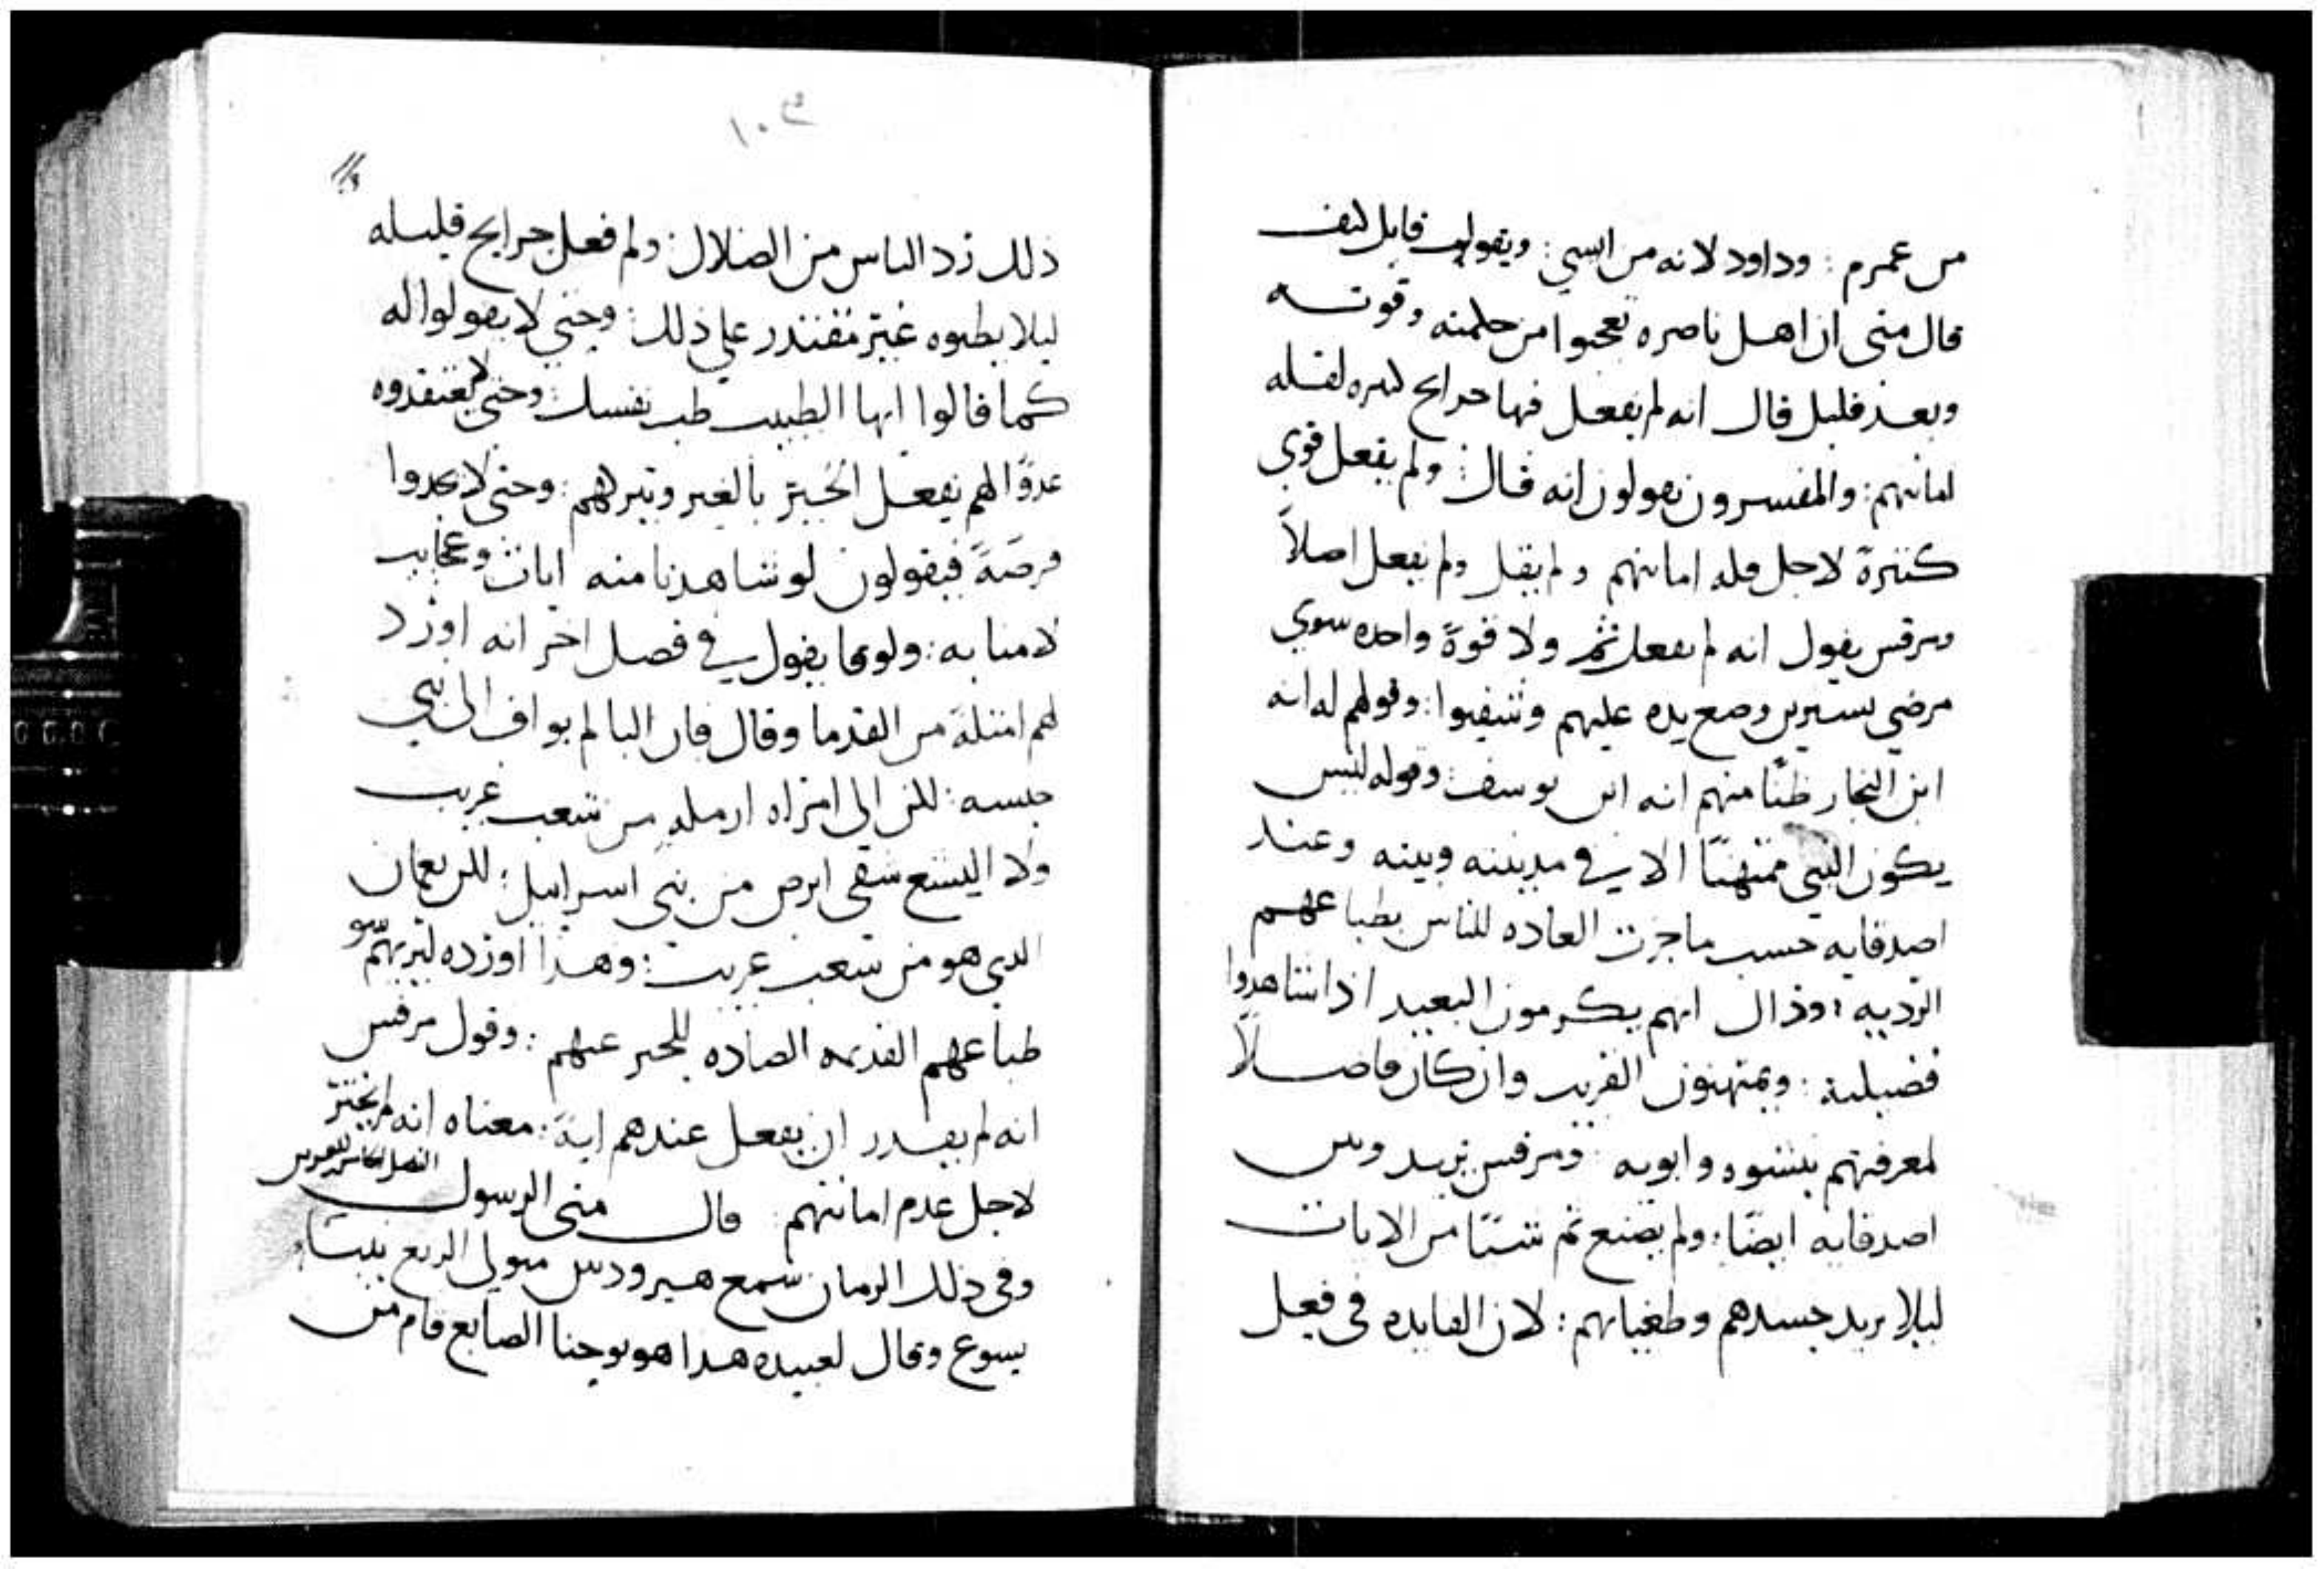 من عمرم : وداود لانه من ايسي : ويقول قايل كيف
قال متى ان اهل ناصره تعجبوا من حكمته وقوته
وبعد قليل قال انه لم يفعل فيها جرايح كثيره لقله
امانتهم : والمفسرون يقولون انه قال : ولم يفعل قوي
كثيرة لاجل قله امانتهم ولم يقل ولم يفعل اصلاً
ومرقس يقول انه لم يفعل ثم ولا قوة واحده سوي
مرضي يسيرين وضع يده عليهم وشفيوا : وقولهم له انه
ابن النجار ظنًا منهم انه ابن يوسف : وقوله ليس
يكون النبي ممتهنًا الا في مدينته وبيته وعند
اصدقايه حسب ما جرت العاده للناس بطباعهم
الرديه : وذاك انهم يكرمون البعيد اذا شاهدوا
فضيلته : ويمتهنون القريب وان كان فاضلاً
لمعرفتهم بنشوه وابويه : ومرقس يزيد وبين
اصدقايه ايضًا : ولم يصنع ثم شيًا من الايات
ليلا يزيد حسدهم وطغيانهم : لان الفايده في فعل
١٠٣
ذلك رد الناس من الضلال : ولم فعل جرايح قليله
ليلا يظنوه غير مقتدر على ذلك : وحتي لا يقولوا له
كما قالوا ايها الطبيب طب نفسك : وحتى لا يعتقدوه
عدوًا لهم يفعل الخير بالغير ويتركهم : وحتى لا يجدوا
فرصةً فيقولون لو شاهدنا منه ايات وعجايب
لامنا به : ولوقا يقول في فصل اخر انه اورد
لهم امثلة من القدما وقال فان اليا لم يواف الى بني
جنسه : لكن الي امراه ارمله من شعب غريب
ولا اليسع شفى ابرص من بني اسراييل : لكن نعمان
الدي هو من شعب غريب : وهذا اورده ليريهم سو
طباعهم القديمه الصاده للخير عنهم : وقول مرقس
انه لم يقدر ان يفعل عندهم اية : معناه انه لم يختر
لاجل عدم امانتهم قال متى الرسول
وفي ذلك الزمان سمع هيرودس متولي الربع بنبا
يسوع وقال لعبيده هدا هو يوحنا الصابغ قام من